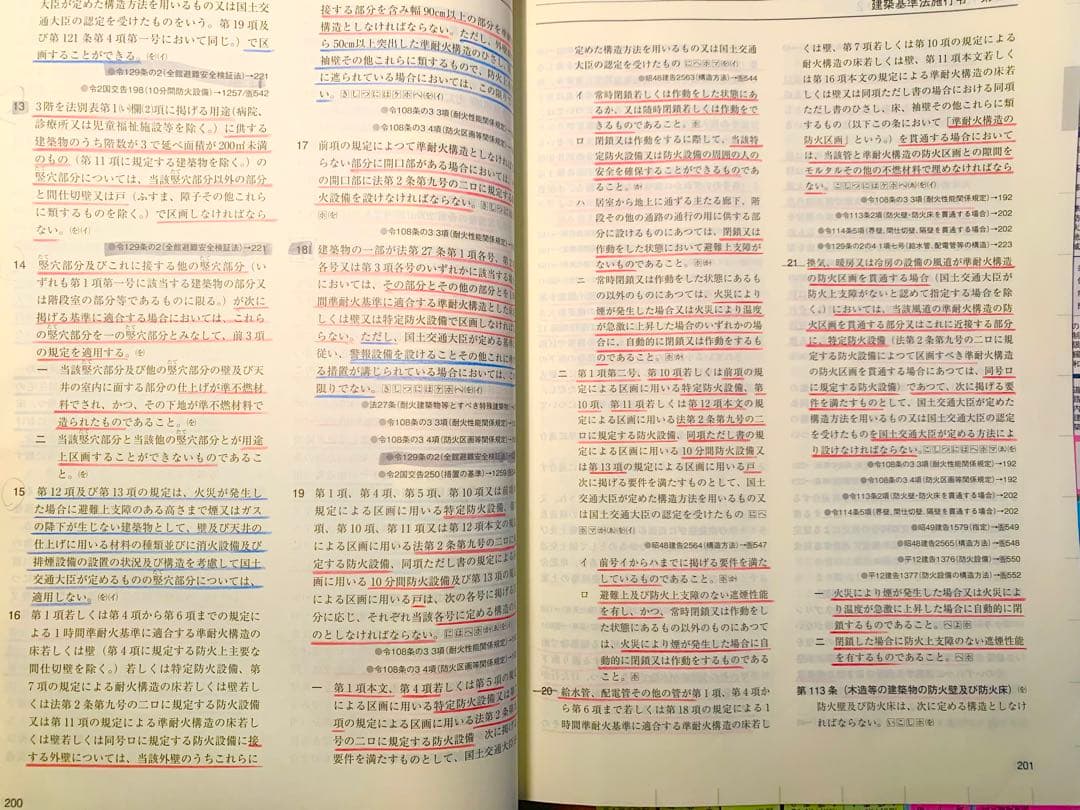 が定めた構造方法を用いるもの又は国土交
通大臣の認定を受けたものをいう。第19項及
び第121条第4項第一号において同じ。）で区
画することができる。
●令129条の2(全館避難安全検証法)→221
●令2国交告198(10分間防火設備)→1257/画542
13 3階を法別表第1(い)欄(2)項に掲げる用途(病院、
診療所又は児童福祉施設等を除く。）に供する
建築物のうち階数が3で延べ面積が200㎡未満
のもの（第11項に規定する建築物を除く。）の
竪穴部分については、当該竪穴部分以外の部分
と間仕切壁又は戸（ふすま、障子その他これら
に類するものを除く。）で区画しなければなら
ない。
●令129条の2(全館避難安全検証法)→221
14 竪穴部分及びこれに接する他の竪穴部分（い
ずれも第1項第一号に該当する建築物の部分又
は階段室の部分等であるものに限る。）が次に
掲げる基準に適合する場合においては、これら
の竪穴部分を一の竪穴部分とみなして、前3項
の規定を適用する。
一 当該竪穴部分及び他の竪穴部分の壁及び天
井の室内に面する部分の仕上げが準不燃材
料でされ、かつ、その下地が準不燃材料で
造られたものであること。
二 当該竪穴部分と当該他の竪穴部分とが用途
上区画することができないものであるこ
と。
15 第12項及び第13項の規定は、火災が発生し
た場合に避難上支障のある高さまで煙又はガス
の降下が生じない建築物として、壁及び天井の
仕上げに用いる材料の種類並びに消火設備及び
排煙設備の設置の状況及び構造を考慮して国土
交通大臣が定めるものの竪穴部分については、
適用しない。
16 第1項若しくは第4項から第6項までの規定に
よる1時間準耐火基準に適合する準耐火構造の
床若しくは壁（第4項に規定する防火上主要な
間仕切壁を除く。）若しくは特定防火設備、第
7項の規定による耐火構造の床若しくは壁若し
くは法第2条第九号の二ロに規定する防火設備
又は第11項の規定による準耐火構造の床若し
くは壁若しくは同号ロに規定する防火設備に接
する外壁については、当該外壁のうちこれらに
200
接する部分を含み幅90cm以上の部分を準耐火
構造としなければならない。ただし、外壁
ら50cm以上突出した準耐火構造のひさし、
袖壁その他これらに類するもので、防火上
に遮られている場合においては、この限り
●令108条の3 3項(耐火性能関係規定)
●令108条の3 4項(防火区画等関係規定)
17 前項の規定によって準耐火構造としなければな
らない部分に開口部がある場合においては、
の開口部に法第2条第九号の二ロに規定する
火設備を設けなければならない。
●令108条の3 3項(耐火性能関係規定)
●令108条の3 4項(防火区画等関係規定)
18 建築物の一部が法第27条第1項各号、第2
各号又は第3項各号のいずれかに該当する場
においては、その部分とその他の部分とを1
間準耐火基準に適合する準耐火構造とした床
しくは壁又は特定防火設備で区画しなければ
らない。ただし、国土交通大臣が定める基準
従い、警報設備を設けることその他これに準
る措置が講じられている場合においては、こ
限りでない。
●法27条(耐火建築物等とすべき特殊建築物)
●令108条の3 3項(耐火性能関係規定)
●令108条の3 4項(防火区画等関係規定)
●令129条の2(全館避難安全検証法)
●令2国交告250(措置の基準)→1259
19 第1項、第4項、第5項、第10項又は前項の
規定による区画に用いる特定防火設備、第
項、第10項、第11項又は第12項本文の規定
による区画に用いる法第2条第九号の二ロに
定する防火設備、同項ただし書の規定による
画に用いる10分間防火設備及び第13項の規定
による区画に用いる戸は、次の各号に掲げる
分に応じ、それぞれ当該各号に定める構造の
のとしなければならない。
●令108条の3 3項(耐火性能関係規定)
●令108条の3 4項(防火区画等関係規定)
一 第1項本文、第4項若しくは第5項の規定
による区画に用いる特定防火設備又は第
項の規定による区画に用いる法第2条第
号の二ロに規定する防火設備 次に掲げる
要件を満たすものとして、国土交通大臣が
建築基準法施行令
定めた構造方法を用いるもの又は国土交通
大臣の認定を受けたもの
●昭48建告2563(構造方法)→画544
イ 常時閉鎖若しくは作動をした状態にあ
るか、又は随時閉鎖若しくは作動をで
きるものであること。
ロ 閉鎖又は作動をするに際して、当該特
定防火設備又は防火設備の周囲の人の
安全を確保することができるものであ
ること。
ハ 居室から地上に通ずる主たる廊下、階
段その他の通路の通行の用に供する部
分に設けるものにあつては、閉鎖又は
作動をした状態において避難上支障が
ないものであること。
ニ 常時閉鎖又は作動をした状態にあるも
の以外のものにあつては、火災により
煙が発生した場合又は火災により温度
が急激に上昇した場合のいずれかの場
合に、自動的に閉鎖又は作動をするもの
であること。
二 第1項第二号、第10項若しくは前項の規
定による区画に用いる特定防火設備、第
10項、第11項若しくは第12項本文の規
定による区画に用いる法第2条第九号の
二ロに規定する防火設備、同項ただし書の規
定による区画に用いる10分間防火設備又
は第13項の規定による区画に用いる戸
次に掲げる要件を満たすものとして、国土
交通大臣が定めた構造方法を用いるもの又
は国土交通大臣の認定を受けたもの
●昭48建告2564(構造方法)→画547
イ 前号イからハまでに掲げる要件を満た
しているものであること。
ロ 避難上及び防火上支障のない遮煙性能
を有し、かつ、常時閉鎖又は作動をし
た状態にあるもの以外のものにあつて
は、火災により煙が発生した場合に自
動的に閉鎖又は作動をするものである
こと。
20 給水管、配電管その他の管が第1項、第4項か
ら第6項まで若しくは第18項の規定による1
時間準耐火基準に適合する準耐火構造の床若し
くは壁、第7項若しくは第10項の規定による
耐火構造の床若しくは壁、第11項本文若しく
は第16項本文の規定による準耐火構造の床若
しくは壁又は同項ただし書の場合における同項
ただし書のひさし、床、袖壁その他これらに類
するもの（以下この条において「準耐火構造の
防火区画」という。）を貫通する場合において
は、当該管と準耐火構造の防火区画との隙間を
モルタルその他の不燃材料で埋めなければなら
ない。
●令108条の3 3項(耐火性能関係規定)→192
●令113条2項(防火壁･防火床を貫通する場合)→202
●令114条5項(界壁、間仕切壁、隔壁を貫通する場合)→202
●令129条の2の4 1項七号(給水管、配電管等の構造)→223
21 換気、暖房又は冷房の設備の風道が準耐火構造
の防火区画を貫通する場合（国土交通大臣が
防火上支障がないと認めて指定する場合を除
く。）においては、当該風道の準耐火構造の防
火区画を貫通する部分又はこれに近接する部分
に、特定防火設備（法第2条第九号の二ロに規
定する防火設備によつて区画すべき準耐火構造
の防火区画を貫通する場合にあつては、同号ロ
に規定する防火設備）であつて、次に掲げる要
件を満たすものとして、国土交通大臣が定めた
構造方法を用いるもの又は国土交通大臣の認定
を受けたものを国土交通大臣が定める方法によ
り設けなければならない。
●令108条の3 3項(耐火性能関係規定)→192
●令108条の3 4項(防火区画等関係規定)→192
●令113条2項(防火壁･防火床を貫通する場合)→202
●令114条5項(界壁、間仕切壁、隔壁を貫通する場合)→202
●昭49建告1579(指定)→画549
●昭48建告2565(構造方法)→画548
●平12建告1376(防火設備)→画550
●平12建告1377(防火設備の構造方法)→画552
一 火災により煙が発生した場合又は火災によ
り温度が急激に上昇した場合に自動的に閉
鎖するものであること。
二 閉鎖した場合に防火上支障のない遮煙性能
を有するものであること。
第113条（木造等の建築物の防火壁及び防火床）
防火壁及び防火床は、次に定める構造としなけ
ればならない。
201